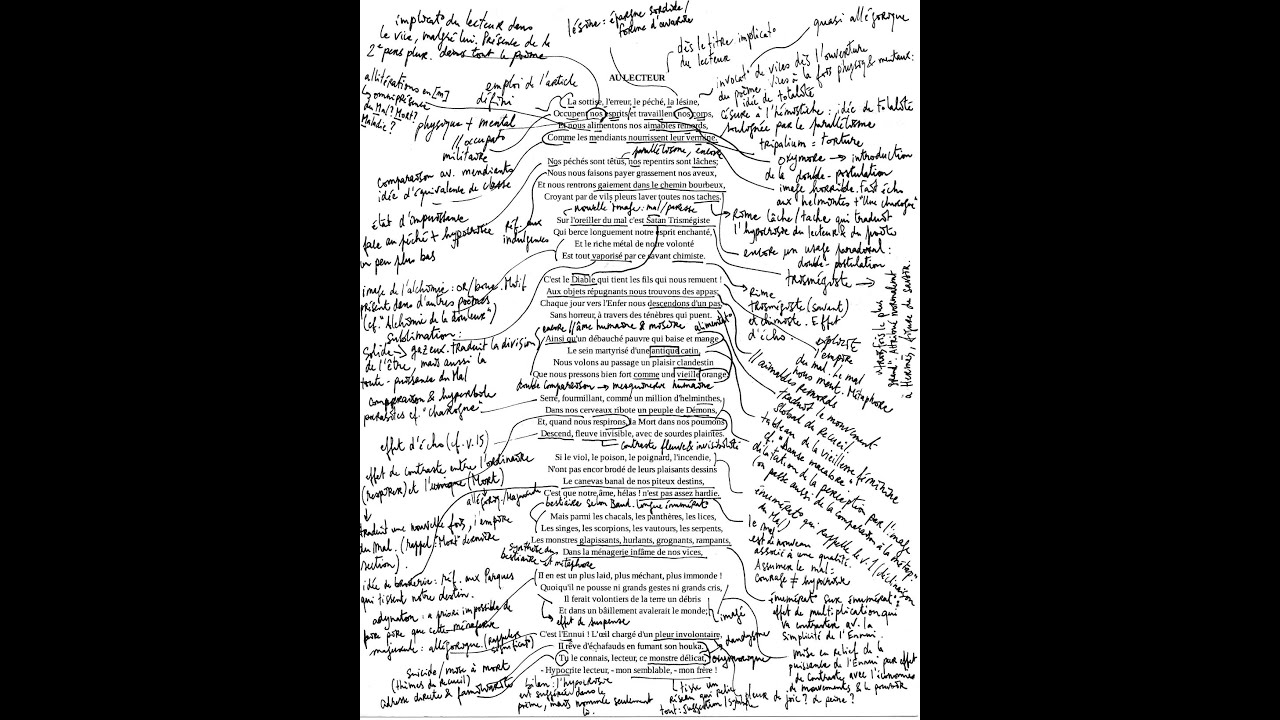 implicat° du lecteur dans
le vice, malgré lui. Présence de la
2e pers plur. dans tout le poème
lésine : épargne sordide /
forme d'avarice
dès le titre implicat°
du lecteur
quasi allégorique
AU LECTEUR
allitérations en [m]
omniprésence
du Mal? Mort?
Maladie?
emploi de l'article
défini
physique + mental
// occupat°
militaire
invocat° de vices dès l'ouverture
du poème : vices à la fois physiq & mentaux :
idée de totalité
césure à l'hémistiche : idée de totalité
soulignée par le parallélisme
tripalium = torture
La sottise, l'erreur, le péché, la lésine,
Occupent nos esprits et travaillent nos corps,
Et nous alimentons nos aimables remords,
Comme les mendiants nourrissent leur vermine.
parallélisme, encore
oxymore → introduction
de la double-postulation
image horrible. Fait écho
aux helminthes + "Une charogne"
Comparaison av. mendiants
idée d'équivalence de classe
Nos péchés sont têtus, nos repentirs sont lâches;
Nous nous faisons payer grassement nos aveux,
Et nous rentrons gaiement dans le chemin bourbeux,
Croyant par de vils pleurs laver toutes nos taches.
nouvelle image : mal/paresse
état d'impuissance
face au péché + hypocrisie
un peu plus bas
réf. aux
indulgences
Rime lâche/tache qui traduit
l'hypocrisie du lecteur & du poète
encore un usage paradoxal :
double-postulation
Sur l'oreiller du mal c'est Satan Trismégiste
Qui berce longuement notre esprit enchanté,
Et le riche métal de notre volonté
Est tout vaporisé par ce savant chimiste.
trismégiste →
"trois fois le plus
grand". Attribué normalement
à Hermès, figure du savoir.
image de l'alchimie : or/boue. Motif
présent dans d'autres poèmes
(cf. "Alchimie de la douleur")
Sublimation :
solide → gazeux. Traduit la division
de l'être, mais aussi la
toute-puissance du Mal
Rime
trismégiste (savant)
et chimiste. Effet
d'écho.
C'est le Diable qui tient les fils qui nous remuent !
Aux objets répugnants nous trouvons des appas;
Chaque jour vers l'Enfer nous descendons d'un pas,
Sans horreur, à travers des ténèbres qui puent.
encore // âme humaine & misère
explicite
empire
du mal. Le mal
nous ment. Métaphore
// aimables remords
traduit le mouvement
global du recueil
Ainsi qu'un débauché pauvre qui baise et mange
Le sein martyrisé d'une antique catin,
Nous volons au passage un plaisir clandestin
Que nous pressons bien fort comme une vieille orange.
double comparaison → mesquinerie humaine
tableau de la vieillesse féminine
cf. "Danse macabre"
comparaison & hyperbole
parasites cf. "charogne"
Serré, fourmillant, comme un million d'helminthes,
Dans nos cerveaux ribote un peuple de Démons,
Et, quand nous respirons, la Mort dans nos poumons
Descend, fleuve invisible, avec de sourdes plaintes.
contraste fleuve & invisibilité
effet d'écho (cf. v.15)
effet de contraste entre l'ordinaire
(respirer) et l'unique (Mort)
allégorie/Majuscule
traduit une nouvelle fois, l'empire
du Mal. (rappel : "Mort" dernière
section).
dilatation de la perception par l'image
(on passe aussi de la comparaison à la métap°)
Si le viol, le poison, le poignard, l'incendie,
N'ont pas encor brodé de leurs plaisants dessins
Le canevas banal de nos piteux destins,
C'est que notre âme, hélas ! n'est pas assez hardie.
bestiaire selon Baud. longue énumérat°
énumérat° qui rappelle le v.1
le mal
est de nouveau
associé à une qualité.
Assumer le mal :
courage ≠ hypocrisie
Mais parmi les chacals, les panthères, les lices,
Les singes, les scorpions, les vautours, les serpents,
Les monstres glapissants, hurlants, grognants, rampants,
Dans la ménagerie infâme de nos vices,
synthèse du
bestiaire et métaphore
idée de broderie : réf. aux Parques
qui tissent notre destin.
adynaton : a priori impossible de
faire pire que cette ménagerie
énumérat° sur énumérat° :
effet de multiplication qui
va contraster av. la
simplicité de l'Ennui.
Il en est un plus laid, plus méchant, plus immonde !
Quoiqu'il ne pousse ni grands gestes ni grands cris,
Il ferait volontiers de la terre un débris
Et dans un bâillement avalerait le monde;
effet de suspense
imagé
majuscule : allégorique
mise en relief de la
puissance de l'Ennui par effet
de contraste avec l'économie
de mouvements & le pouvoir
C'est l'Ennui ! L'œil chargé d'un pleur involontaire,
Il rêve d'échafauds en fumant son houka.
Tu le connais, lecteur, ce monstre délicat,
- Hypocrite lecteur, - mon semblable, - mon frère !
dandysme
oxymorique
suicide / mise à mort
(thèmes du recueil)
adresse directe & familiarité
bilan : l'hypocrisie
est suggérée dans le
poème, mais nommée seulement
là.
tisse un
réseau qui relie
tout : suggestion / symbole
pleur de
joie ? de peine ?